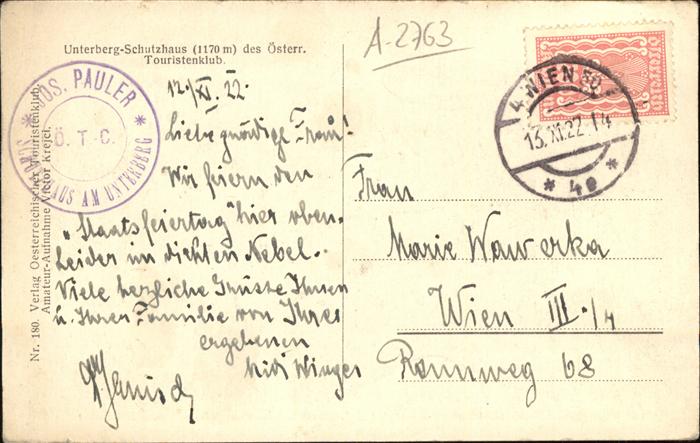 A-2763
Unterberg-Schutzhaus (1170 m) des Österr.
Touristenklub.
JOS. PAULER
Ö. T. C.
AUS AM UNTERBERG
Nr. 180. Verlag Oesterreichischer Touristenklub.
Amateur-Aufnahme Victor Krejci.
12./XI. 22.
Liebe gnädige Frau!
Wir feiern den
„Staatsfeiertag" hier oben.
Leider im dichten Nebel.
Viele herzliche Grüsse Ihnen
u. Ihrer Familie von Ihrer
ergebenen
Midi Winger
4 WIEN 50
13.XI.22.14
* 4e *
Österreich
Frau
Marie Wawerka
Wien III./4
Rennweg 68